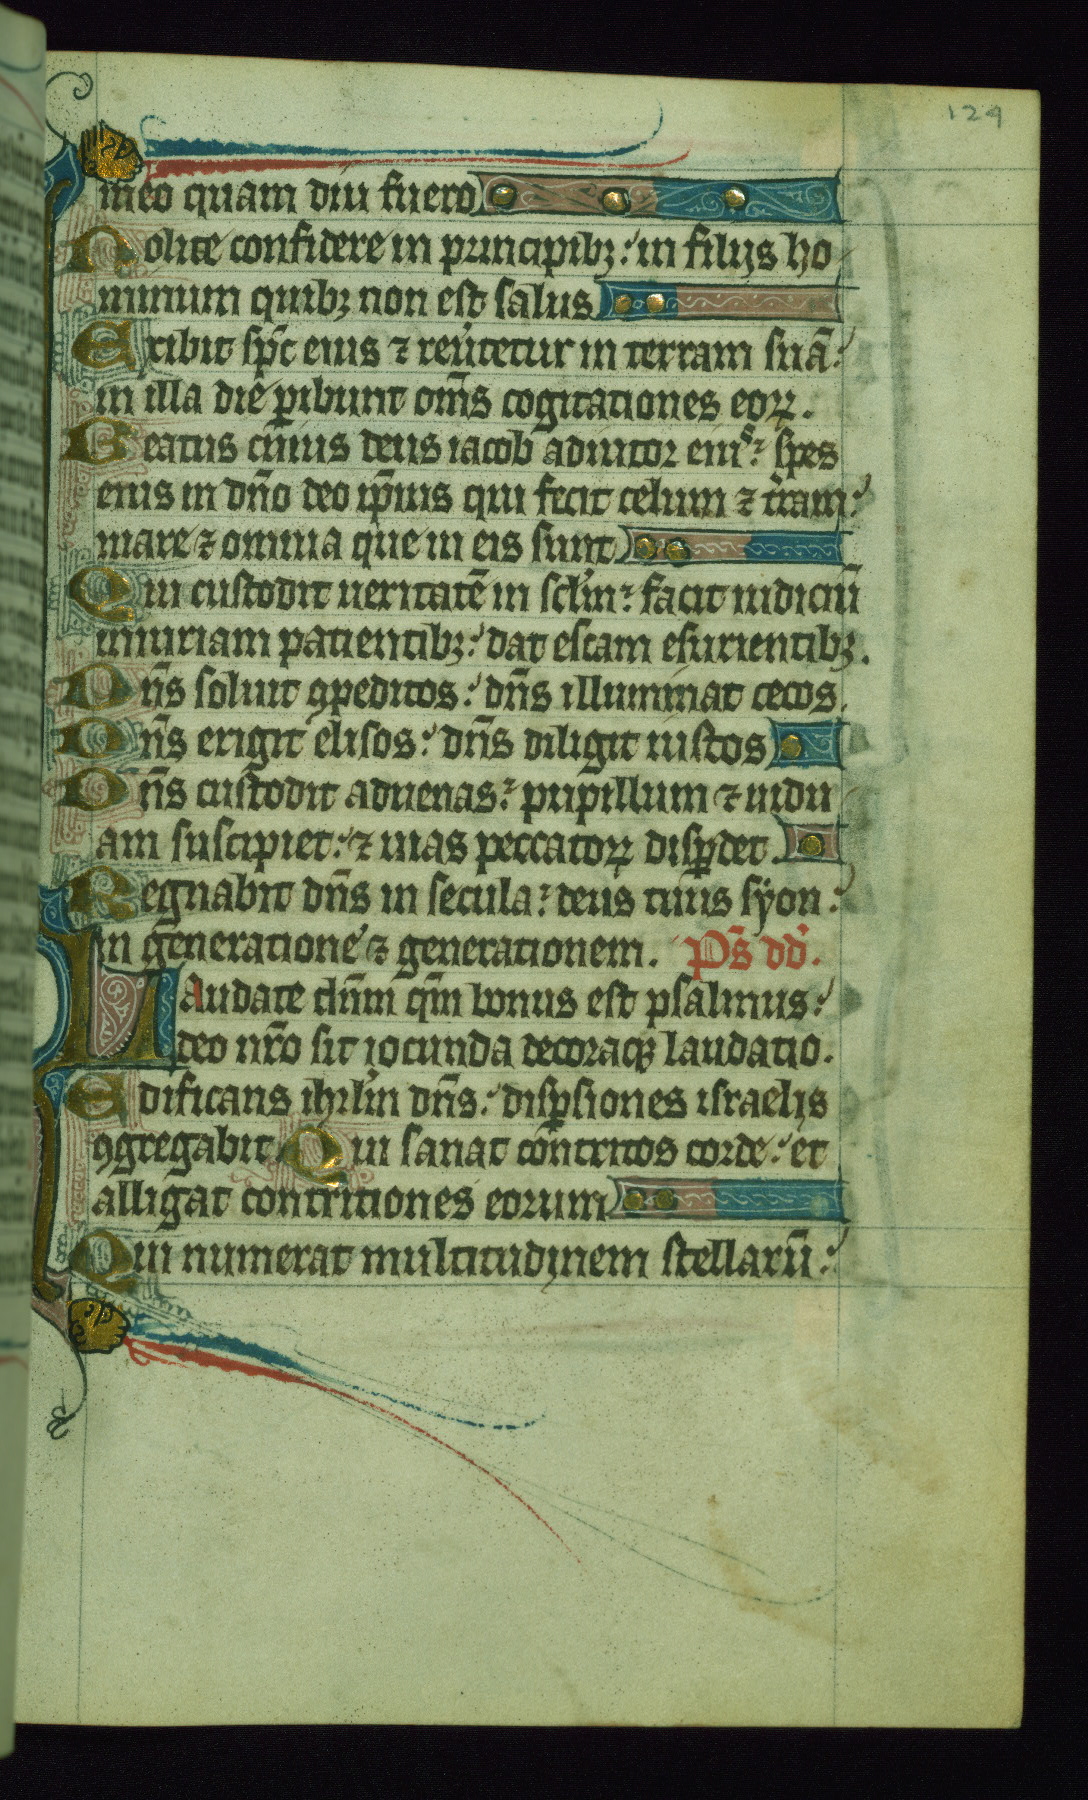 124
meo quam diu fuero
Nolite confidere in principibꝫ: in filijs ho
minum quibꝫ non est salus
Exibit sp̄c eius ⁊ reūtetur in terram suā:
in illa die ꝑibunt om̄s cogitationes eoꝝ.
Beatus cuius deus iacob adiutor eiuˢ: spes
eius in dn̄o deo ip̄ius qui fecit celum ⁊ t̄ram:
mare ⁊ omnia que in eis sunt
Qui custodit ueritatē in sclm̄: facit iudiciū
iniuriam patientibꝫ: dat escam esurientibꝫ.
Dn̄s soluit ꝯpeditos: dn̄s illuminat cecos.
Dn̄s erigit elisos: dn̄s diligit iustos
Dn̄s custodit aduenas: pupillum ⁊ uidu
am suscipiet: ⁊ uias peccatoꝝ disꝑdet.
Regnabit dn̄s in secula: deus tuus syon:
in generatione ⁊ generationem. Ps̄ dd̄.
Laudate dn̄m qm̄ bonus est psalmus:
deo nr̄o sit iocunda decoraqꝫ laudatio.
Edificans ihrlm̄ dn̄s: disꝑsiones israelis
ꝯgregabit. Qui sanat contritos corde: et
alligat contritiones eorum
Qui numerat multitudinem stellarū: